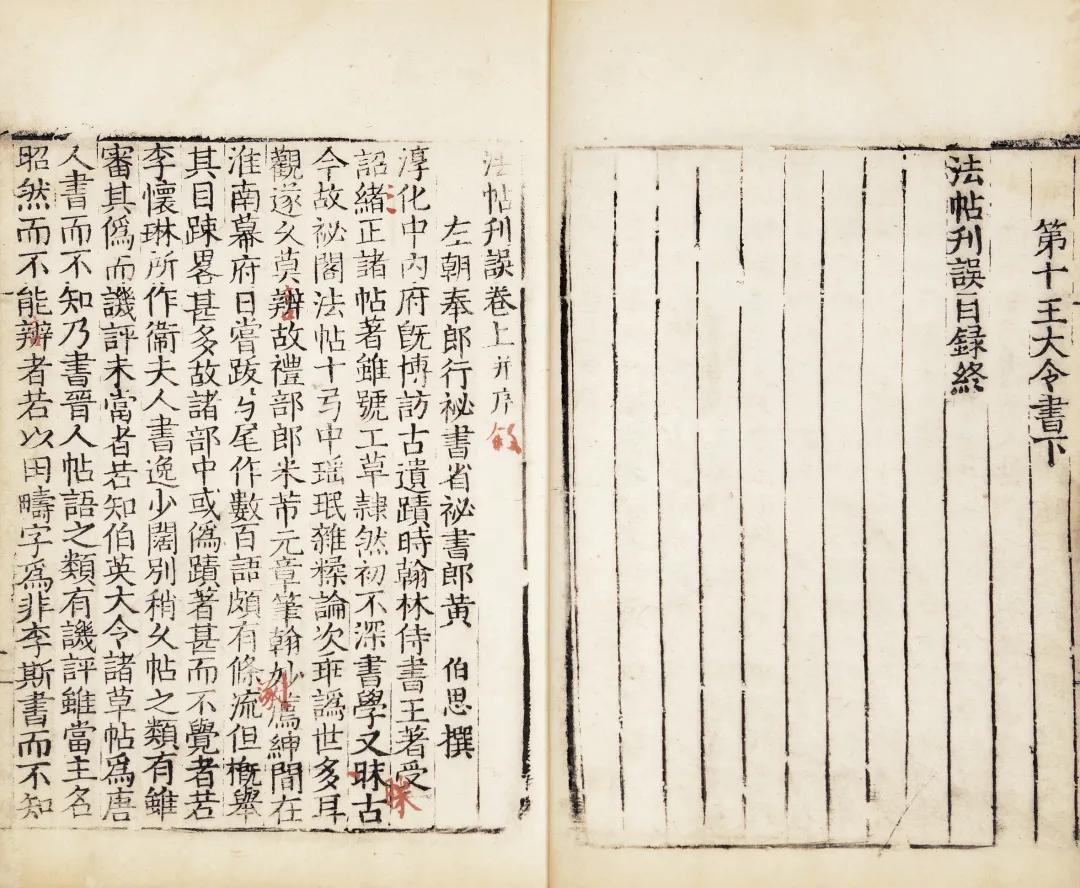 第十王大令書下
法帖刋誤目録終
法帖刋誤卷上并序
敘
左朝奉郎行祕書省祕書郎黃 伯思撰
淳化中內府旣博訪古遺蹟時翰林侍書王著受
詔緒正諸帖著雖號工草隷然初不深書學又昧古
昧
今故祕閣法帖十㢧中瑶珉雜糅論次乖譌世多耳
觀遂乆莫辯故禮部郎米芾元章筆翰妙薦紳間在
淮南幕府日嘗跋㢧尾作數百語頗有條流但概舉
其目踈畧甚多故諸部中或僞蹟著甚而不覺者若
李懷琳所作衞夫人書逸少闊別稍乆帖之類有雖
審其僞而譏評未當者若知伯英大令諸草帖爲唐
人書而不知乃書晉人帖語之類有譏評雖當主名
昭然而不能辯者若以田疇字爲非李斯書而不知